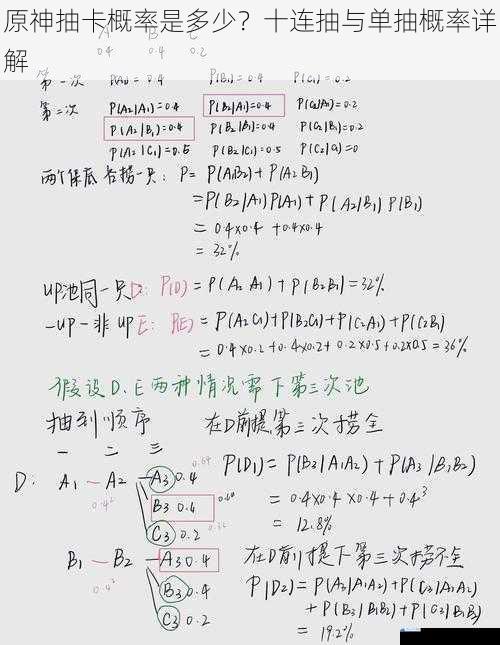 原神抽卡概率是多少？十连抽与单抽概率详解
A B C
0.4 0.4 0.2
第一次 P(A₁)=0.4 P(B₁)=0.4 P(C₁)=0.2
第二次 P(A₂|A₁)=0.4 P(B₂|A₁)=0.4 P(C₂|A₁)=0.2
P(A₂|B₁)=0.4 P(B₂|B₁)=0.4 P(C₂|B₁)=0.2
P(A₂|C₁)=0.5 P(B₂|C₁)=0.5 P(C₂|C₁)=0
两个保底各捞一只: P= P(A₁B₂)+P(A₂B₁)
=P(B₂|A₁)P(A₁)+P(A₂|B₁)P(B₁)
= 0.4×0.4 +0.4×0.4
= 32%
UP池同一只D: P(D)=P(A₂A₁)+P(B₂B₁)=32%
一UP一非UP E: P(E)=P(A₂C₁)+P(B₂C₁)+P(C₂A₁)+P(C₂B₁)
=0.4×0.2+0.4×0.2+0.2×0.5+0.2×0.5=36%
假设D、E两种情况需下第三次池
抽到顺序 在D前提第三次捞全
一 二 三
D: A₁ — A₂ — A₃ 0.4 P(D₁)=P(B₃|A₁A₂)+P(A₃|B₁B₂)
0.4² B₃ 0.4 = 0.4×0.4×0.4+0.4³
C₃ 0.2 = 12.8%
B₁ — B₂ — A₃ 0.4 在D前提下第三次捞不全
0.4² B₃ 0.4 P(D₂)=P(A₃|A₁A₂)+P(C₃|A₁A₂)
C₃ 0.2 +P(B₃|B₁B₂)+P(C₃|B₁B₂)
= 19.2%